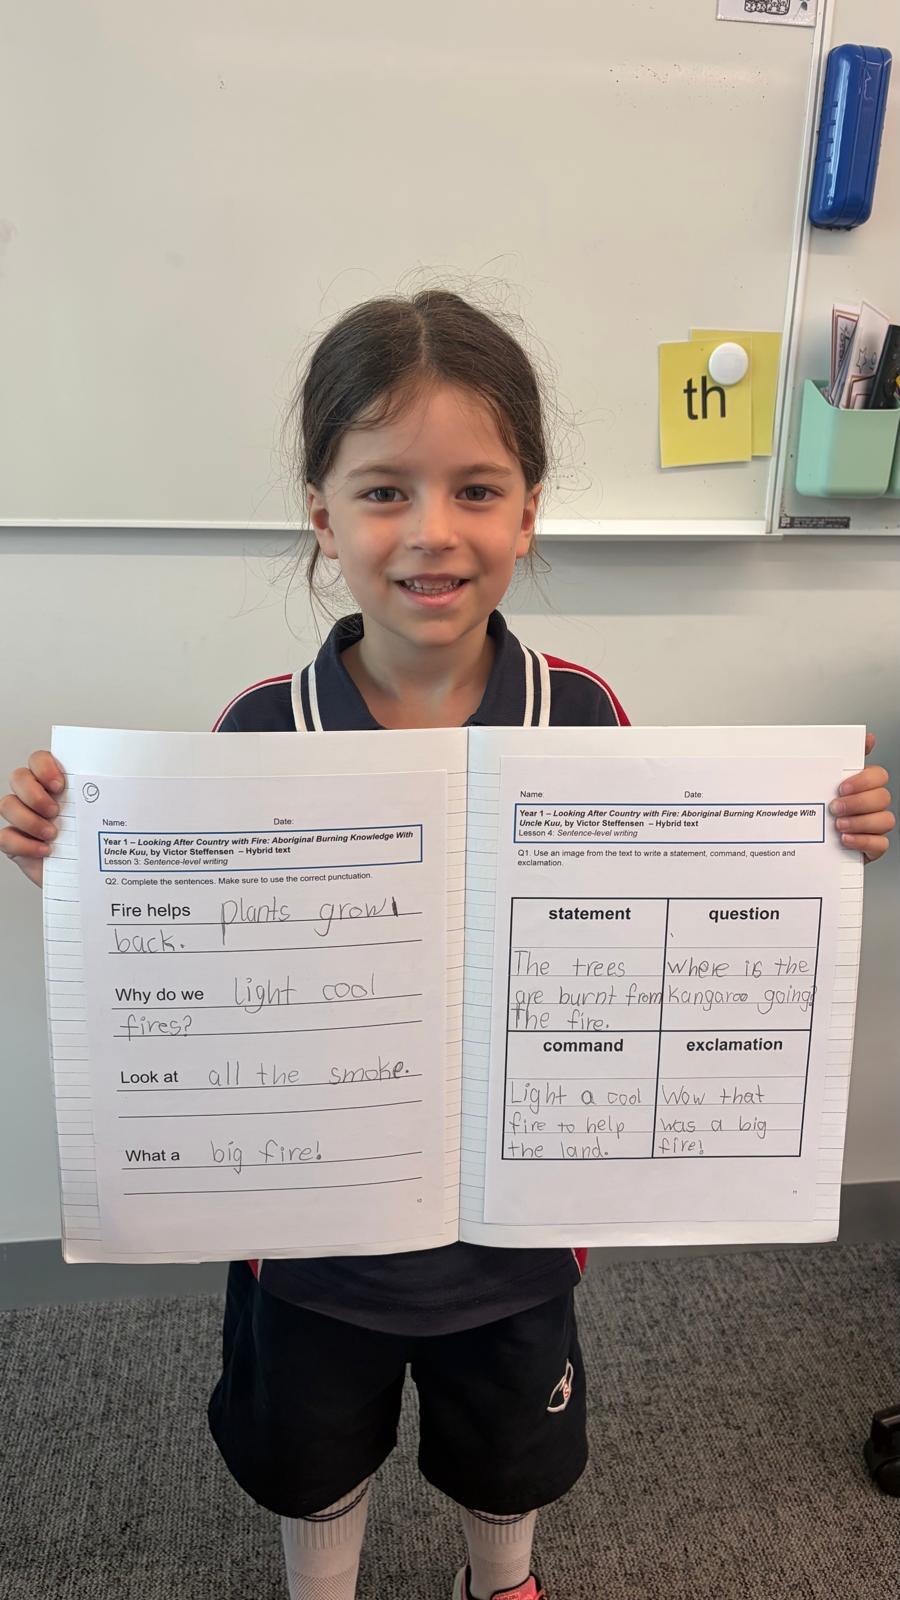 th
Name: Date:
Year 1 – Looking After Country with Fire: Aboriginal Burning Knowledge With
Uncle Kuu, by Victor Steffensen – Hybrid text
Lesson 3: Sentence-level writing
Q2. Complete the sentences. Make sure to use the correct punctuation.
Fire helps plants grow
back.
Why do we light cool
fires?
Look at all the smoke.
What a big fire!
10
Name: Date:
Year 1 – Looking After Country with Fire: Aboriginal Burning Knowledge With
Uncle Kuu, by Victor Steffensen – Hybrid text
Lesson 4: Sentence-level writing
Q1. Use an image from the text to write a statement, command, question and
exclamation.
statement
The trees
are burnt from
The fire.
question
where is the
kangaroo going?
command
Light a cool
fire to help
the land.
exclamation
Wow that
was a big
fire!
11